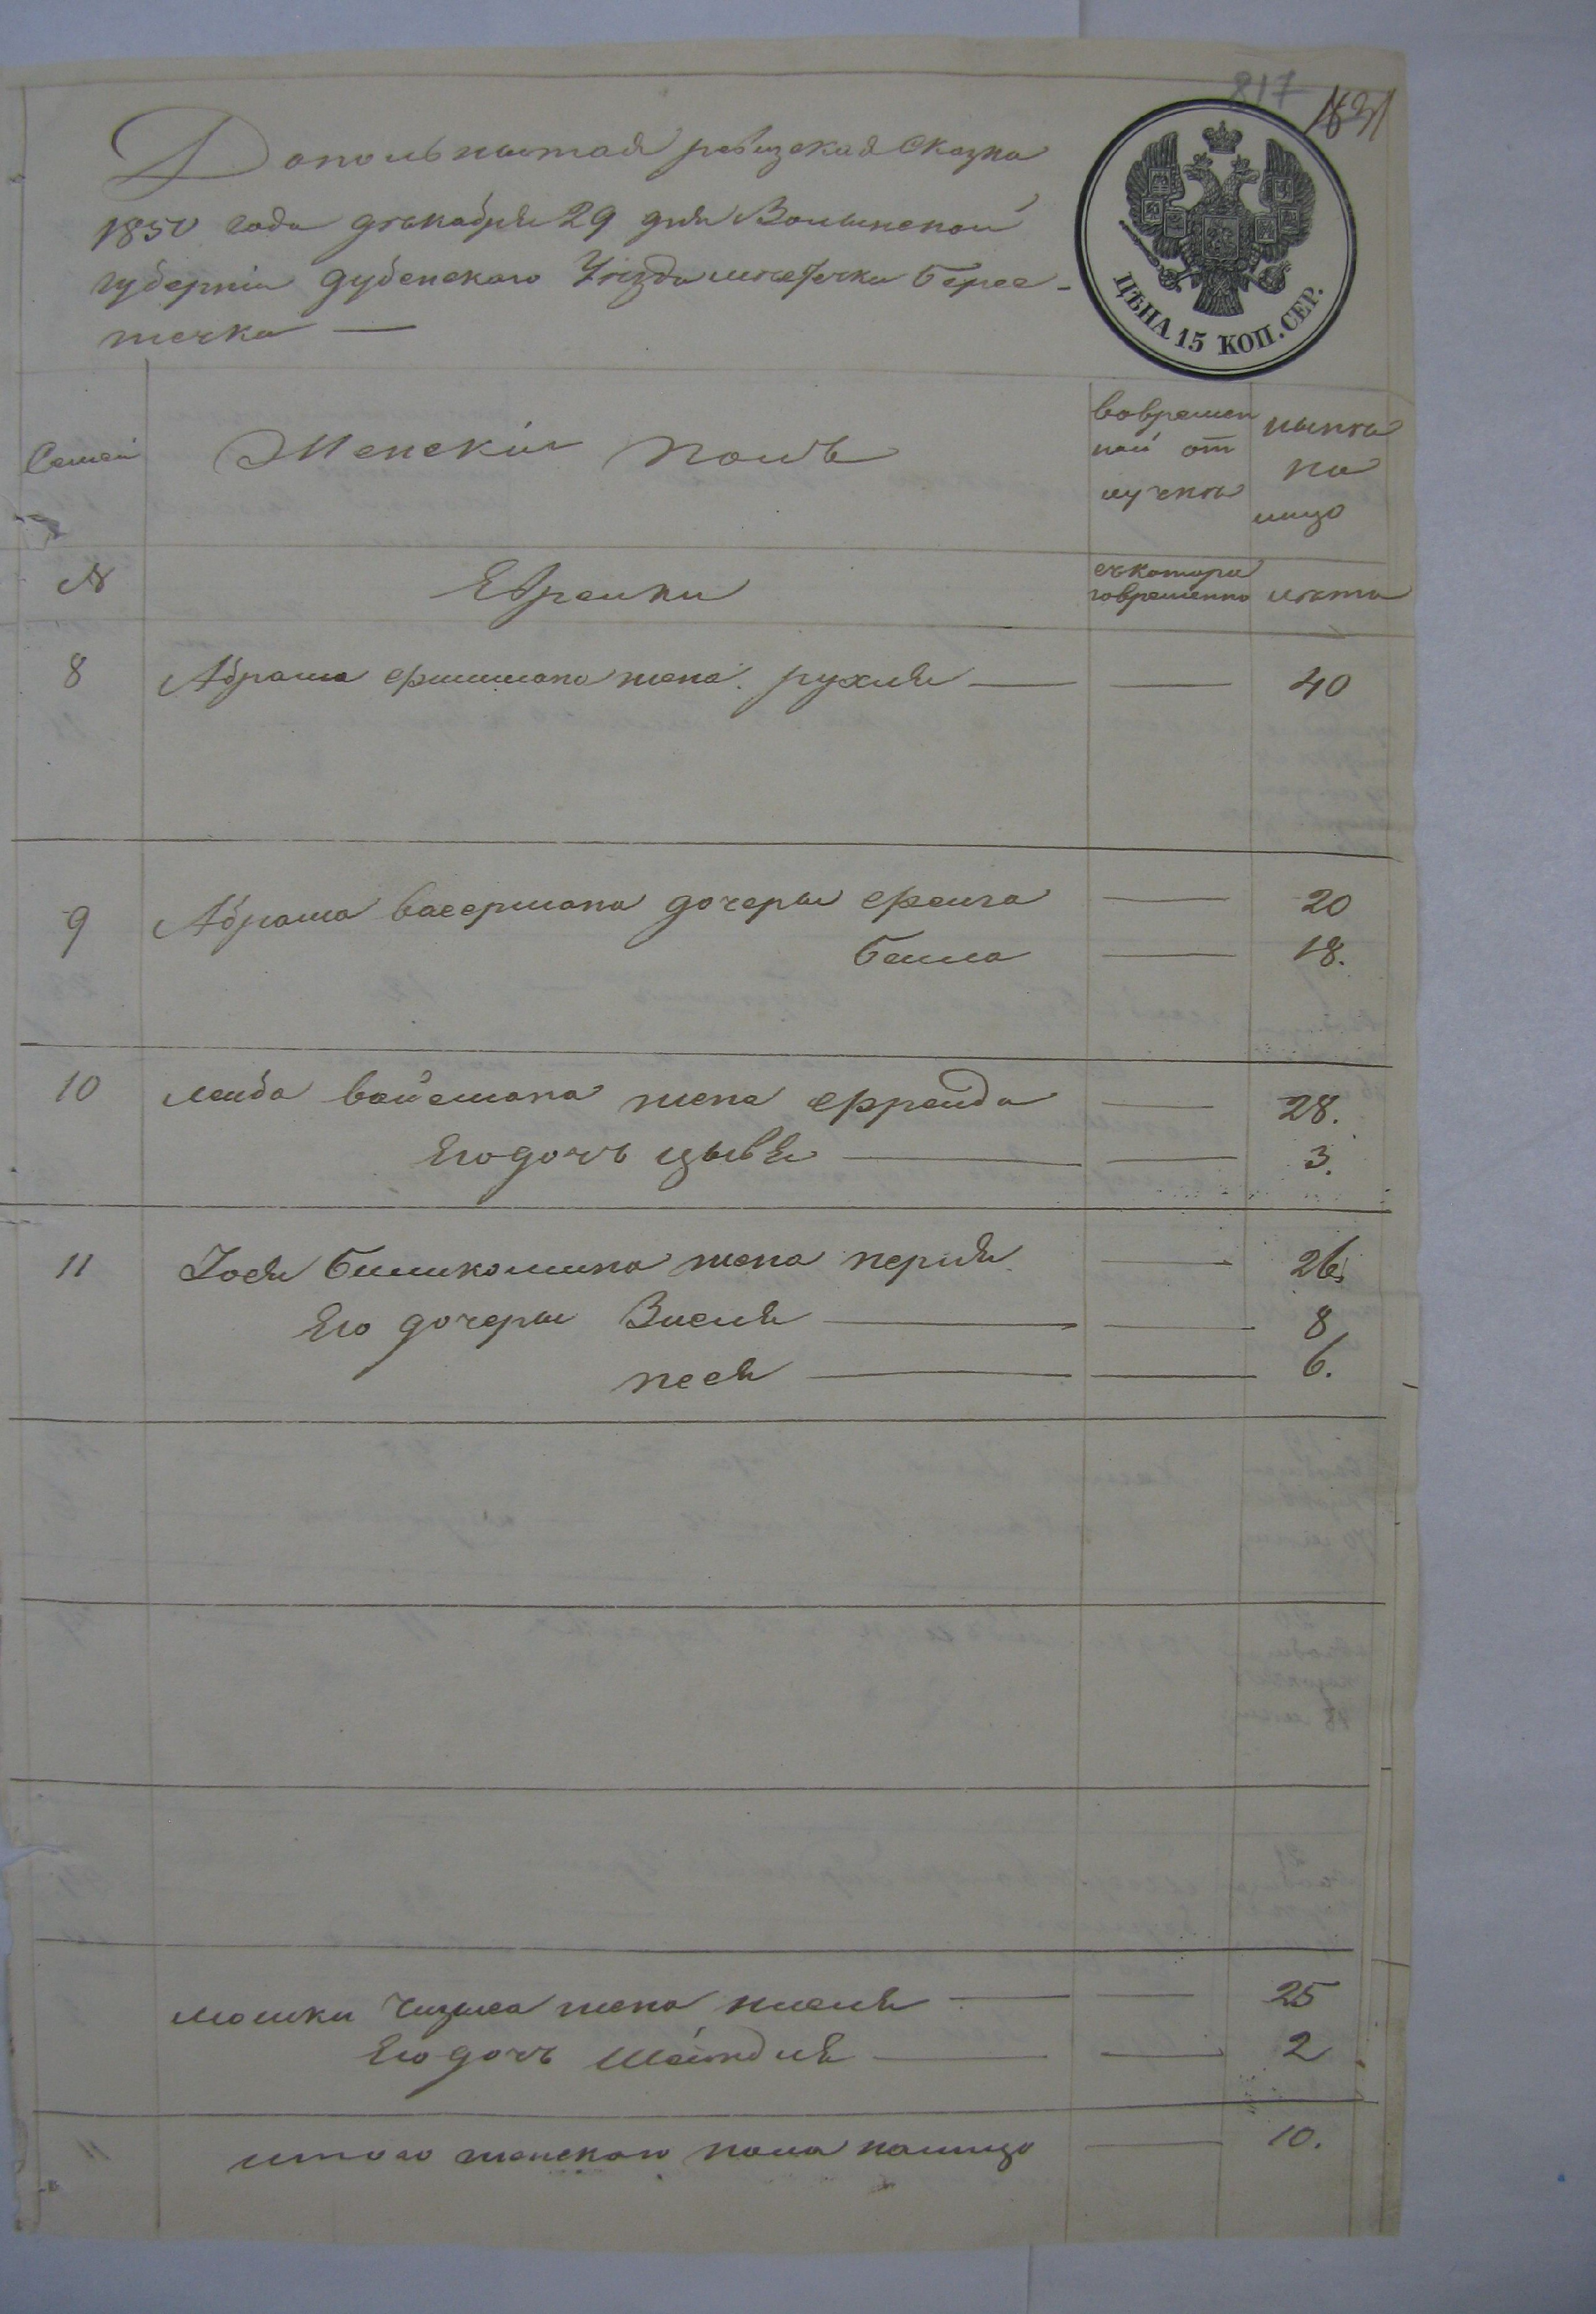 217 1831
Допольнытая ревизская Сказка
1850 года дѣкабря 29 дня Волынской
губерніи дубенского Уѣзда мѣстечка Берес-
течка —
ЦѢНА 15 КОП. СЕР.
Семей Женскій полъ вовремен нынѣ
ной от на
лучкѣ лицо
№ Еврейки съкотора лѣта
говременно
8 Абрама фишмана жена рухля — — 40
9 Абрама васермана дочеры фейга — 20
бейла — 18.
10 лейба вайсмана жена фрейда — 28.
Его дочь цывя — — 3.
11 Іося жена перля — 26.
Его дочеры Вися — — 8
песя — — 6.
мошки Чизмеа жена — — 25
Его дочь Шейндля — — 2
итого женского пола налицо — 10.